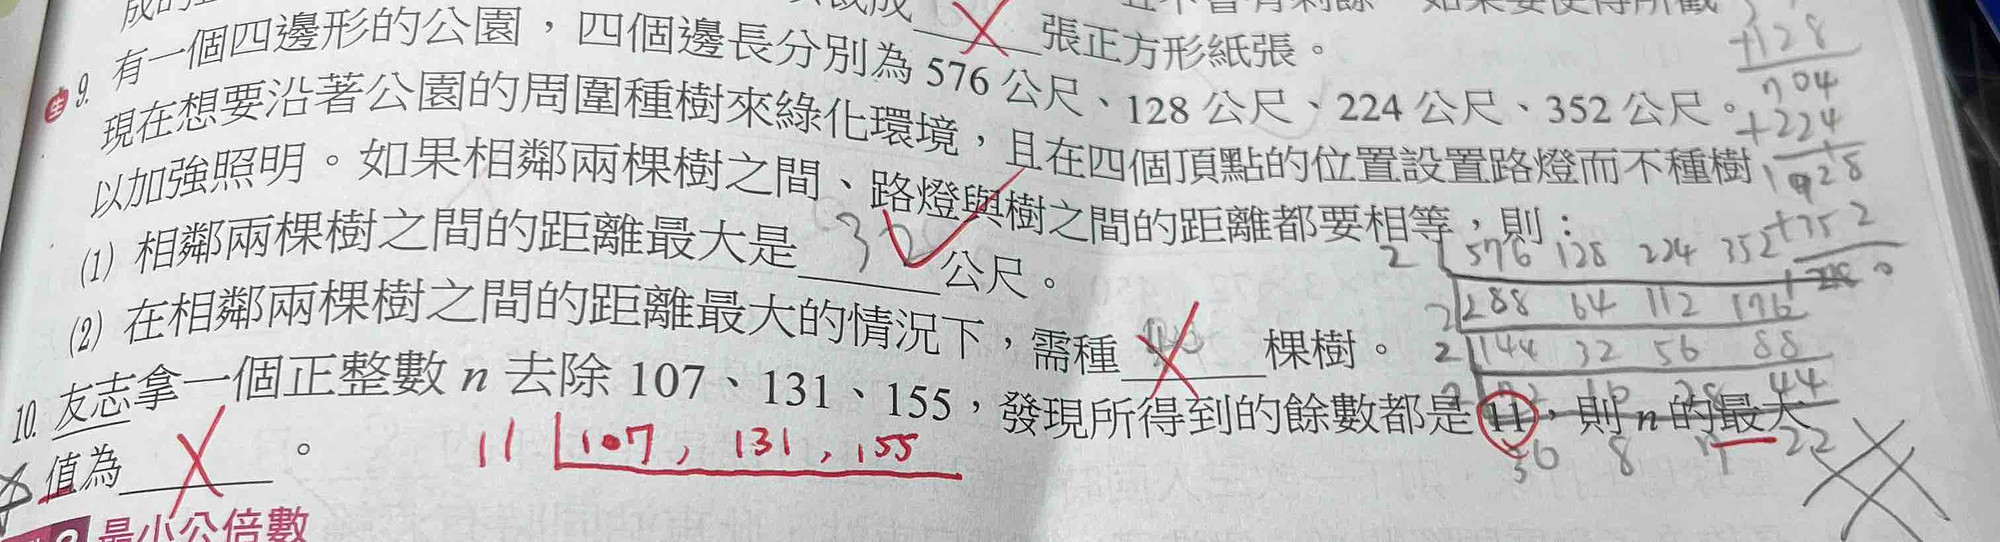 張正方形紙張。
9. 有一個四邊形的公園，四個邊長分別為 576 公尺、128 公尺、224 公尺、352 公尺。
現在想要沿著公園的周圍種樹來綠化環境，且在四個頂點的位置設置路燈而不種樹
以加強照明。如果相鄰兩棵樹之間、路燈與樹之間的距離都要相等，則：
(1) 相鄰兩棵樹之間的距離最大是 32 公尺。
(2) 在相鄰兩棵樹之間的距離最大的情況下，需種 棵樹。
10. 友志拿一個正整數 n 去除 107、131、155，發現所得到的餘數都是 11，則 n 的最大
值為 。
11 107, 131, 155
最小公倍數
+128
704
+224
928
+352
2 576 128 224 352
2 288 64 112 176
2 144 32 56 88
28 44
36 8 22